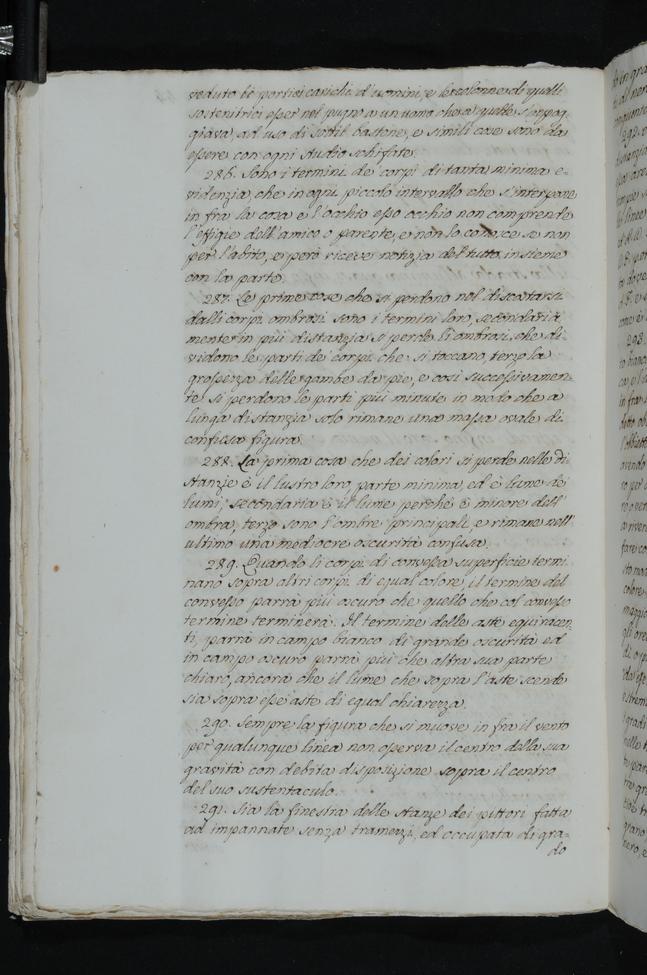 veduto bè portici carichi d'uomini, e le colonne di quelli
sostenitrici esser nel pugno a un uomo che a quelle s'appog-
giava, ad uso di sottil bastone, e simili cose sono da
essere con ogni studio schifate.
286. Sono i termini de' corpi di tanta minima e-
videnzia, che in ogni piccolo intervallo che s'interpone
in fra la cosa e l'occhio esso occhio non comprende
l'effigie dell'amico o parente, e non lo conosce se non
per l'abito, e però riceve notizia del tutto insieme
con la parte.
287. Le prime cose che si perdono nel discostarsi
dalli corpi ombrosi sono i termini loro, secondaria
mente in più distanzia si perde li ombrosi, che di-
vidono le parti de corpi che si toccano, terzo la
grossezza delle gambe da pie, e così successivamen-
te si perdono le parti più minute in modo che a
lunga distanzia solo rimane una massa ovale di
confusa figura.
288. La prima cosa che dei colori si perde nelle di-
stanzie è il lustro loro, parte minima, ed è lume de'
lumi; secondaria è il lume perchè è minore dell'
ombra, terzo sono l'ombre principali, e rimane nell'
ultimo una mediocre oscurità confusa.
289. Quando li corpi di convessa superficie termi
nano sopra altri corpi di egual colore, il termine del
convesso parrà più oscuro che quello che col convesso
termine terminerà. Il termine delle aste equiiacen-
ti, parrà in campo bianco di grande oscurità ed
in campo oscuro parrà più che altra sua parte
chiaro, ancorà che il lume che sopra l'aste scende
sia sopra esse aste di egual chiarezza.
290. Sempre la figura che si muove in fra il vento
per qualunque linea non osserva il centro della sua
gravità con debita disposizione sopra il centro
del suo sustentaculo.
291. Sia la finestra delle stanze dei pittori fatta
ad impannate senza tramezzi, ed occupata di gra-
do